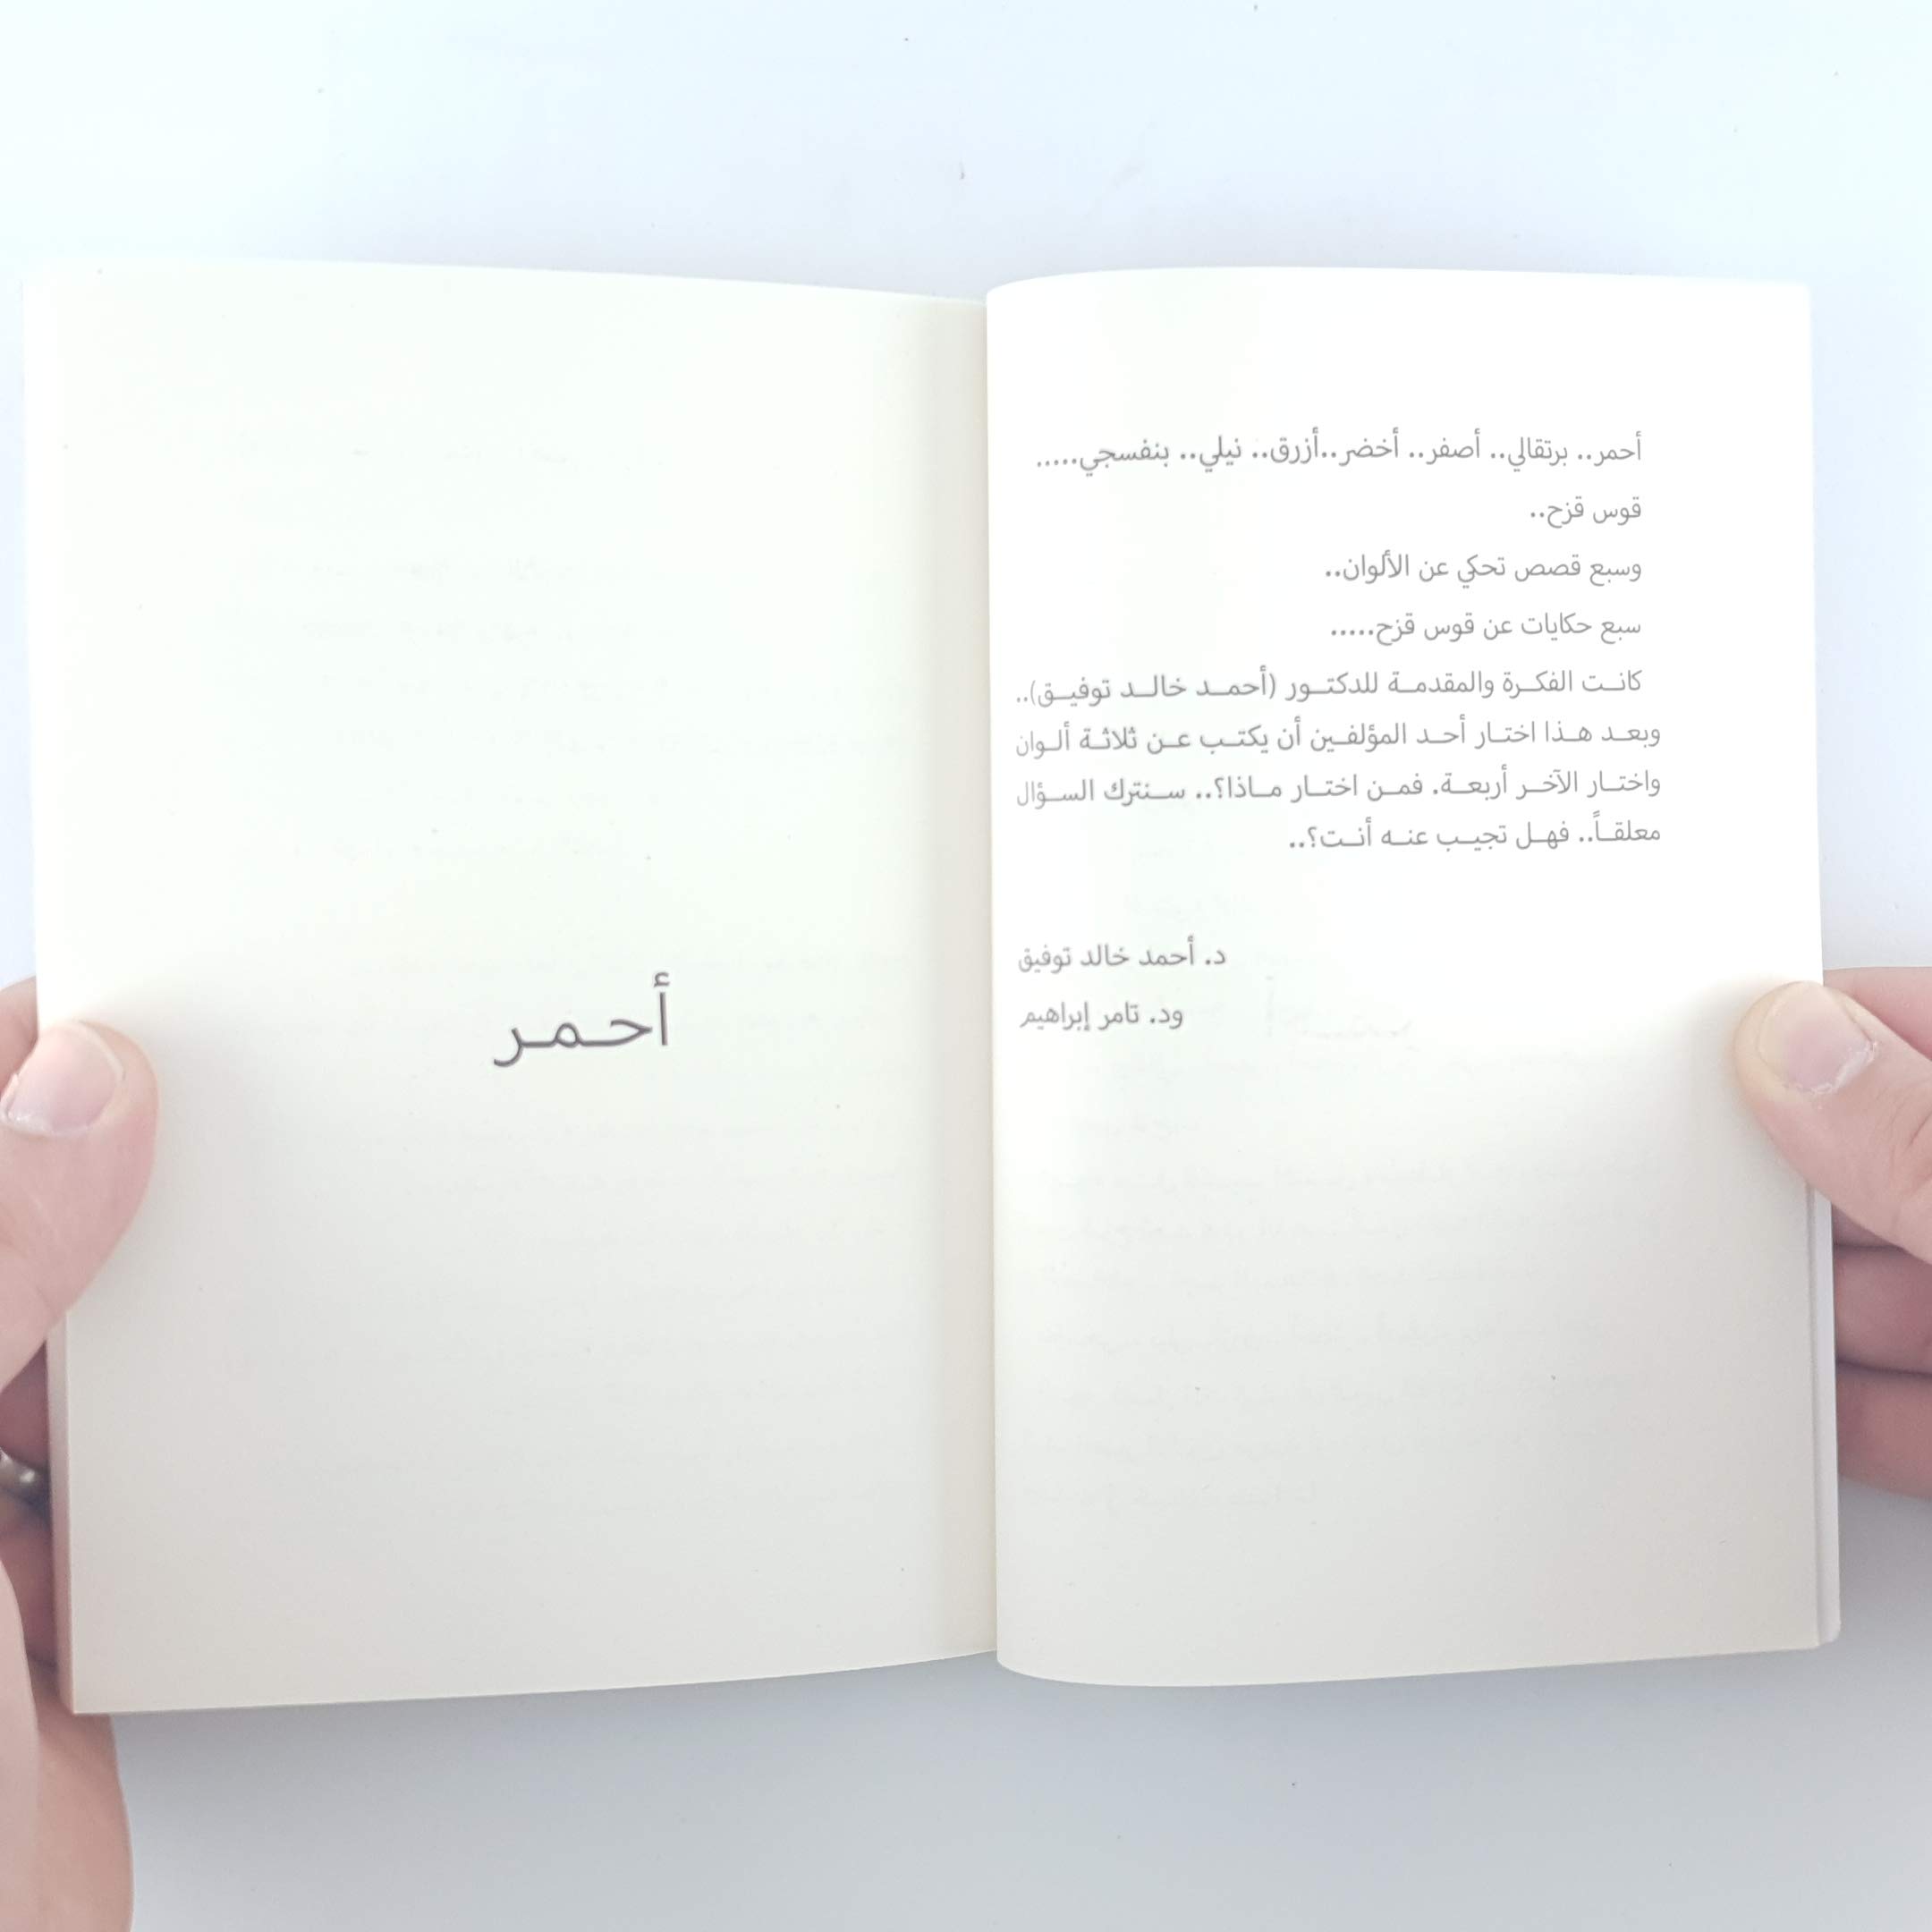 أحمر.. برتقالي.. أصفر.. أخضر..أزرق.. نيلي.. بنفسجي.....
قوس قزح..
وسبع قصص تحكي عن الألوان..
سبع حكايات عن قوس قزح.....
كانت الفكرة والمقدمة للدكتور (أحمد خالد توفيق)..
وبعد هذا اختار أحد المؤلفين أن يكتب عن ثلاثة ألوان
واختار الآخر أربعة. فمن اختار ماذا؟.. سنترك السؤال
معلقاً.. فهل تجيب عنه أنت؟..
د. أحمد خالد توفيق
ود. تامر إبراهيم
أحمر